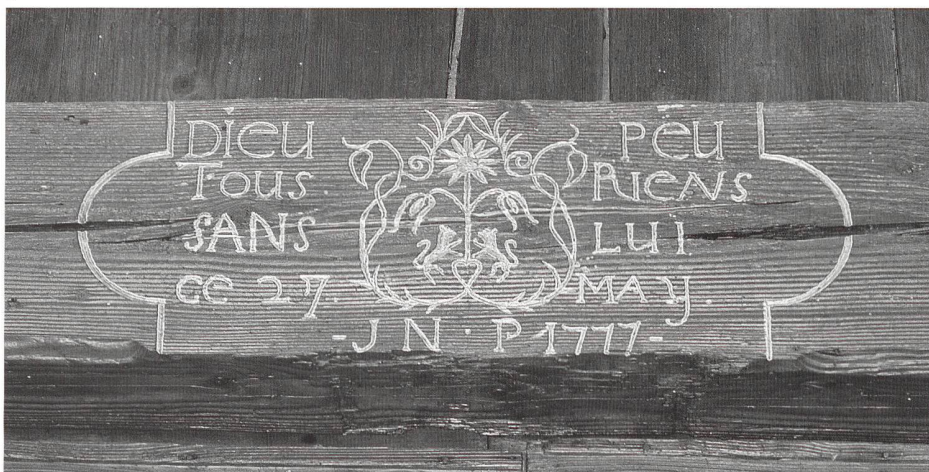 Dieu Peu
Tous Riens
SANS LUI
ce 27. MAY.
- J N · P 1777 -